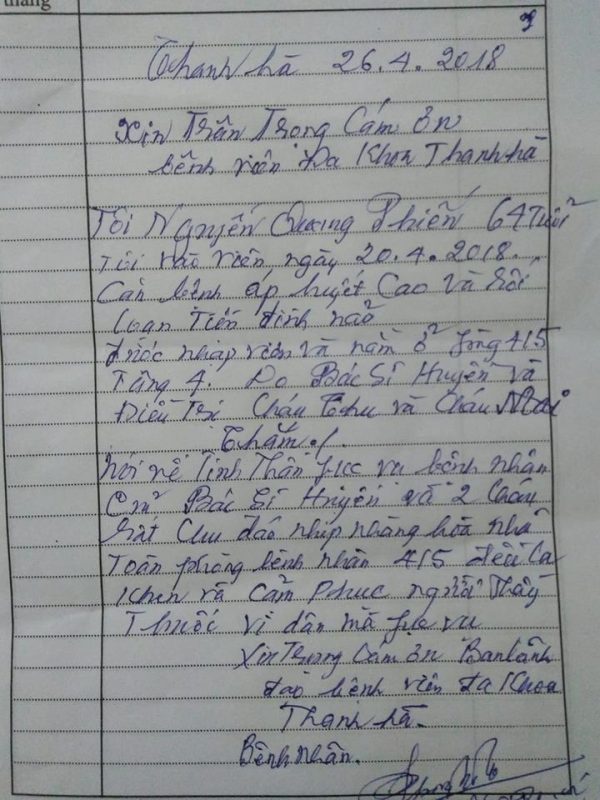 tháng
3
Thanh hà 26.4.2018
Xin Trân Trọng Cám ơn
bênh viên Đa Khoa Thanh hà
Tôi Nguyễn Quang Phiến 64 Tuổi
Tôi vào viên ngày 20.4.2018.
Căn bênh áp huyết Cao và rối
loạn Tiền đình naõ
được nhập viên và nằm ở fòng 415
Tầng 4. Do Bác Sĩ Huyền và
Điều Trị Cháu Thu và Cháu Mai
Thắm./.
Nói về Tinh Thần fục vụ bệnh nhân
Của Bác Sĩ Huyền và 2 Cháu
Rất Chu đáo nhịp nhàng hòa nhã
Toàn phòng bênh nhân 415 đều Ca
Khen và Cảm Phục người Thầy
Thuốc vì dân mà fục vụ
Xin Trọng Cám ơn Ban lãnh
đạo bệnh viên đa Khoa
Thanh hà.
Bênh nhân.